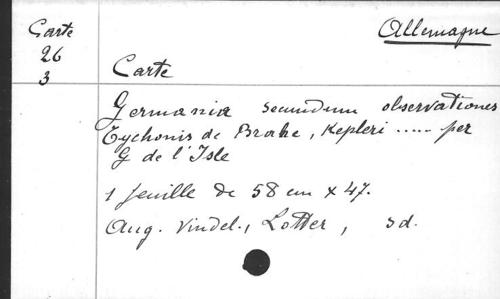 Carte
26
3
Allemagne
Carte
Germania secundum observationes
Tychonis de Brahe, Kepleri ..... per
G de l'Isle
1 feuille de 58 cm x 47.
Aug. Vindel., Lotter, sd.